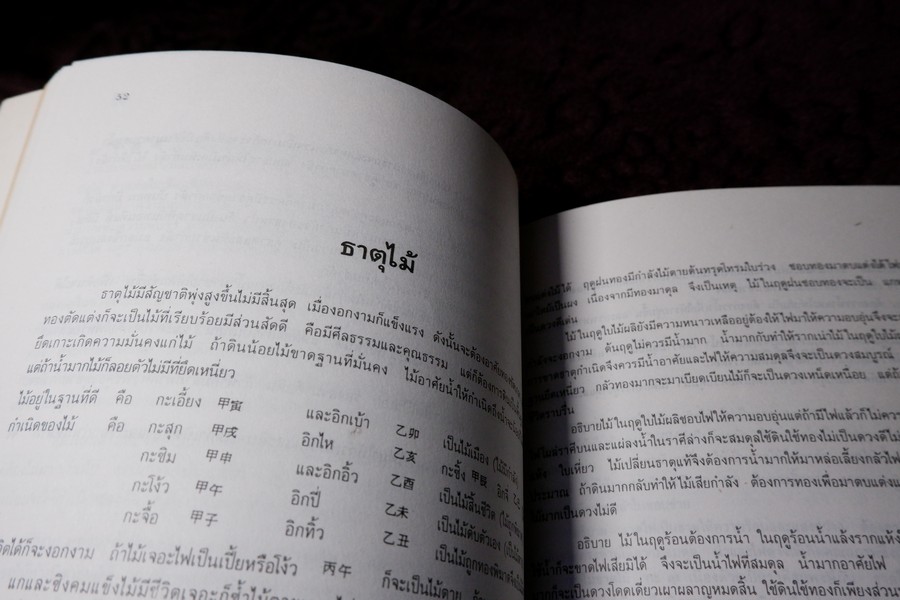 52
ธาตุไม้
ธาตุไม้มีสัญชาติพุ่งสูงขึ้นไม่มีสิ้นสุด เมื่องอกงามก็แข็งแรง ดังนั้นจะต้องอาศัย
ทองตัดแต่งก็จะเป็นไม้ที่เรียบร้อยมีส่วนสัดดี คือมีศีลธรรมและคุณธรรม แต่ก็ต้องการดิน
ยึดเกาะเกิดความมั่นคงแก่ไม้ ถ้าดินน้อยไม้ขาดฐานที่มั่นคง ไม้อาศัยน้ำให้กำเนิด
แต่ถ้าน้ำมากไม้ก็ลอยตัวไม่มีที่ยึดเหนี่ยว
ไม้อยู่ในฐานที่ดี คือ กะเอี้ยง 甲寅 และอิกเบ้า 乙卯 เป็นไม้เมือง
กำเนิดของไม้ คือ กะสุก 甲戌 อิกไห 乙亥 กะซิ้ง 甲辰 อิกจี
กะซิม 甲申 และอิกอิ้ว 乙酉 เป็นไม้สิ้นชีวิต
กะโง้ว 甲午 อิกบี่ 乙未 เป็นไม้ดับตัวเอง
กะจื้อ 甲子 อิกทิ้ว 乙丑 เป็นไม้ถูกทอง
ก็จะงอกงาม ถ้าไม้เจอะไฟเป็นเปี้ยหรือโง้ว 丙午 ก็จะเป็นไม้ตาย
แกและซิงคมแข็งไม้มีชีวิตเจอะก็
ไม้ได้ ฤดูฝนทองมีกำลังไม้ตายต้นทรุดโทรมใบร่วง ชอบทองมาตบแต่งได้ไฟ
เป็นผง เนื่องจากมีทองมาดุล จึงเป็นเหตุ ไม้ในฤดูฝนชอบทองจะเป็น
ไม้ในฤดูใบไม้ผลิยังมีความหนาวเหลืออยู่ต้องให้ไฟมาให้ความอบอุ่นจึงจะ
จะงอกงาม ต้นฤดูไม่ควรมีน้ำมาก น้ำมากก็ทำให้รากเน่าไม้ในฤดูใบไม้
ธาตุกำเนิดจึงควรมีน้ำอาศัยและไฟให้ความสมดุลจึงจะเป็นดวงสมบูรณ์
กลัวทองมากจะมาเบียดเบียนไม้ก็จะเป็นดวงเหน็ดเหนื่อย แต่ถ้า
ราบรื่น
อธิบายไม้ในฤดูใบไม้ผลิชอบไฟให้ความอบอุ่นแต่ถ้ามีไฟแล้วก็ไม่ควร
ราศีบนและแผ่ลงน้ำในราศีล่างก็จะสมดุลใช้ดินใช้ทองไม่เป็นดวงดี
ใบเหี่ยว ไม้เปลี่ยนธาตุแท้จึงต้องการน้ำมากให้มาหล่อเลี้ยงกลัวไฟ
ประมาณ ถ้าดินมากกลับทำให้ไม้เสียกำลัง ต้องการทองเพื่อมาตบแต่ง
มีมากเป็นดวงไม่ดี
อธิบาย ไม้ในฤดูร้อนต้องการน้ำ ในฤดูร้อนน้ำแล้งรากแห้ง
น้ำก็จะขาดไฟเสียมิได้ จึงจะเป็นน้ำไฟที่สมดุล น้ำมากอาศัยไฟ
มากเป็นดวงโดดเดี่ยวเผาผลาญหมดสิ้น ใช้ดินใช้ทองก็เพียงส่วน